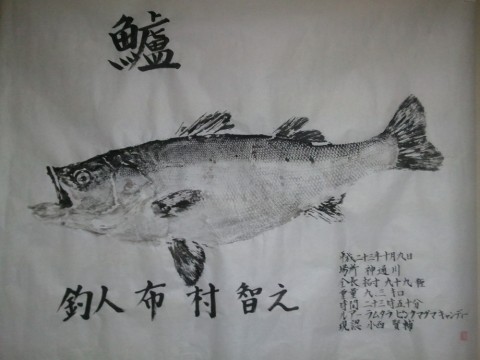 鱸
釣人 布村 智え
平成二十三年十月九日
場所 神通川
全長 拓寸 九十九 糎
重量 九.三キロ
時間 二十三時五十分
ルアー ラムタラ ピンクマグマキャンディー
現認 小西 賢輔